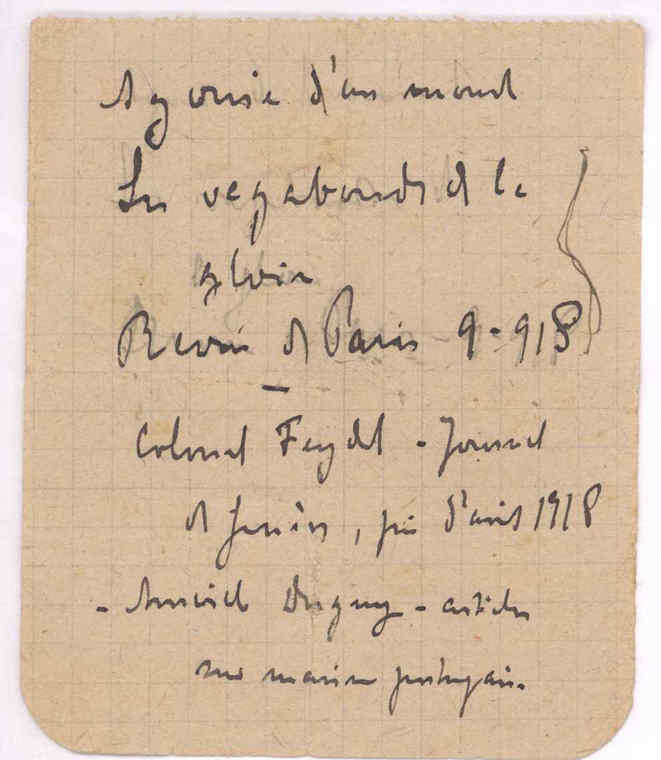 Agonie d'un monde
Les vagabonds de la
gloire
Revue de Paris 9-918
Colonel Feydel - Journal
de Genève, fin d'août 1918
- Amiral Degouy - articles
sur marine portugaise.